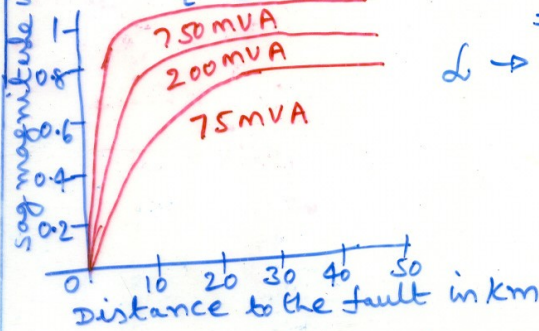 sag magnitude
1
0.8
0.6
0.4
0.2
0
750 MVA
200 MVA
75 MVA
L →
10 20 30 40 50
Distance to the fault in km